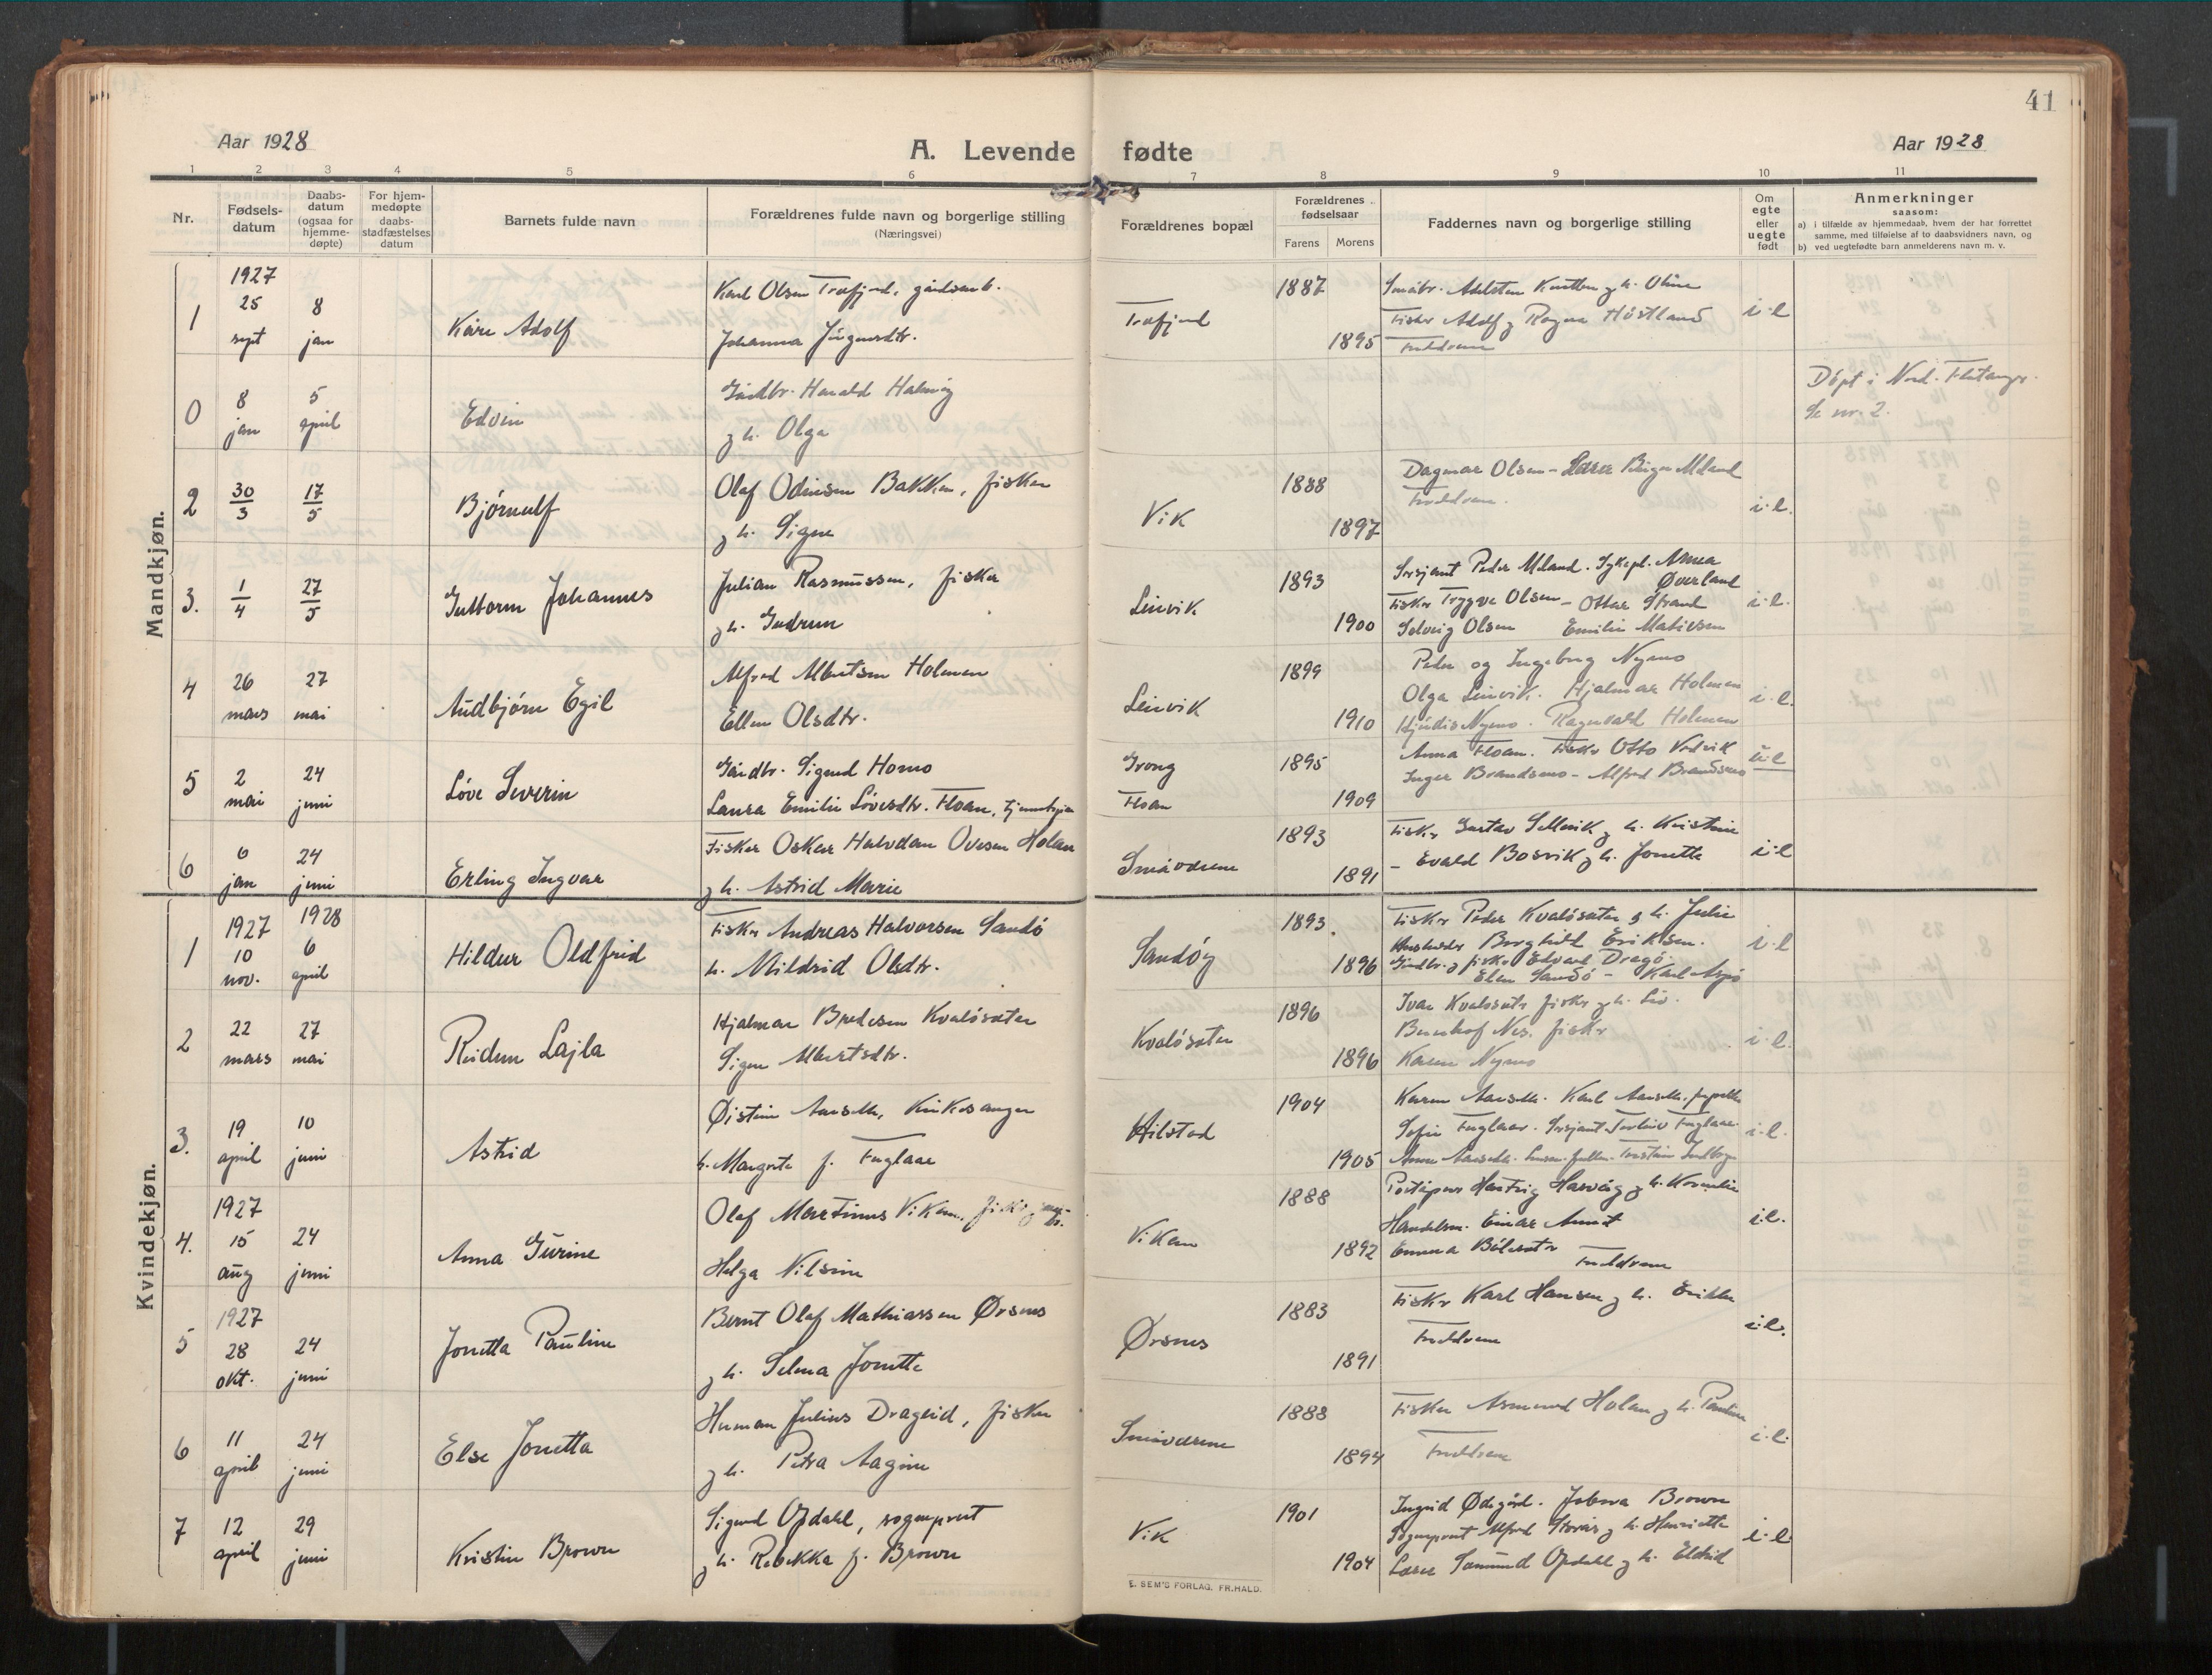 41
Aar 1928
A. Levende fødte
Aar 1928
1 2 3 4 5 6 7 8 9 10 11
Nr.
Fødsels-
datum
Daabs-
datum
(ogsaa for
hjemme-
døpte)
For hjem-
medøpte
daabs-
stadfæstelses
datum
Barnets fulde navn
Forældrenes fulde navn og borgerlige stilling
(Næringsvei)
Forældrenes bopæl
Forældrenes
fødselsaar
Farens Morens
Faddernes navn og borgerlige stilling
Om
egte
eller
uegte
født
Anmerkninger
saasom:
a) i tilfælde av hjemmedaab, hvem der har forrettet
samme, med tilføielse af to daabsvidners navn, og
b) ved uegtefødte barn anmelderens navn m. v.
Mandkjøn.
1927
1 25 sept 8 jan
Kåre Adolf
Karl Olsen Træfjord, gårdsarb.
Johanna
Træfjord
1887
1895
Oline
Fisker Adolf og Ragna Høstland
i.l
0 8 jan 5 april
Edvin
Gårdbr. Harald
og h. Olga
Døpt i Nord-Flatanger.
Se nr. 2.
2 30/3 17/5
Bjørnulf
Olaf Odinsen Bakken, fisker
og h. Signe
Vik
1888
1897
Dagmar Olsen - Lærer Birger Meland
i.l.
3. 1/4 27/5
Guttorm Johannes
Julian Rasmussen, fisker
og h. Gudrun
Leirvik
1893
1900
Sersjant Peder Meland. Sykepl. Anna
Øverland
Fisker Trygve Olsen - Ottar Strand
Solveig Olsen Emilie Matievsen
i.l.
4 26 mars 27 mai
Audbjørn Egil
Alfred Albertsen Holmen
Ellen Olsdtr.
Leirvik
1899
1910
Peder og Ingeborg Nymo
Olga Leirvik. Hjalmar Holmen
Hjördis Nymo. Ragnvald Holmen
i.l.
5 2 mai 24 juni
Løve Severin
Gårdbr. Sigurd Homo
Laura Emilie Løvesdtr. Floan,
Grong
Floan
1895
1909
Anna Floan. Fisker Otto Vedvik
Inger Brandsmo - Alfred Brandsmo
u.l
6 6 jan 24 juni
Erling Ingvar
Fisker Oskar Halvdan Ovesen Holan
og h. Astrid Marie
Småværene
1893
1891
Fisker Gustav og h. Kristine
- Evald Bosvik og h. Jonette
i.l
Kvindekjøn.
1927 1928
1 10 nov. 6 april
Hildur Oldfrid
Fisker Andreas Halvorsen Sandø
h. Mildrid Olsdtr.
Sandøy
1893
1896
Fisker Peder Kvaløsæter og h. Julie
Borghild Eriksen.
Gårdbr. og fisker Edvard Dragø.
Elen Sandø - Karl
i.l
2 22 mars 27 mai
Reidun Lajla
Hjalmar Bredesen Kvaløsæter
Signe Albertsdtr.
Kvaløsæter
1896
1896
Ivar Kvaløsætr fisker og h. Liv.
Nes. fisker
Karen Nymo
i.l.
3. 19 april 10 juni
Astrid
Øistein Aarseth, Kirkesanger
h. Margrete f. Fuglaar
Hilstad
1904
1905
Karen Aarseth. Karl Aarseth,
Sofie Fuglaar. Sersjant Torleiv Fuglaar.
i.l.
1927
4. 15 aug 24 juni
Anna Gurine
Olaf Martinus Viken, fisker og
Helga Nilsine
Viken
1888
1892
Hartvig Harvåg og h. Kornelie
Handelsm. Einar
Emma
Fuldvene
i.l.
1927
5 28 okt. 24 juni
Jonetta Pauline
Bernt Olaf Mathiassen Ørsnes
og h. Selma Jonette
Ørsnes
1883
1891
Fisker Karl Hansen og h. Erikka
i.l.
6 11 april 24 juni
Else Jonetta
Herman Julius Drageid, fisker
og h. Petra Aagine
Småværene
1888
1894
Fisker Asmund Holan og h. Pauline
i.l.
7 12 april 29 juni
Kristin Brown
Sigurd Opdahl, sogneprest
og h. Rebekka f. Brown
Vik
1901
1904
Ingrid Ødegård. Brown
Sogneprest Alfred Storås og h. Henriette
Lærer Samund Opdahl og h. Eldrid
i.l
E. SEM'S FORLAG, FR.HALD.